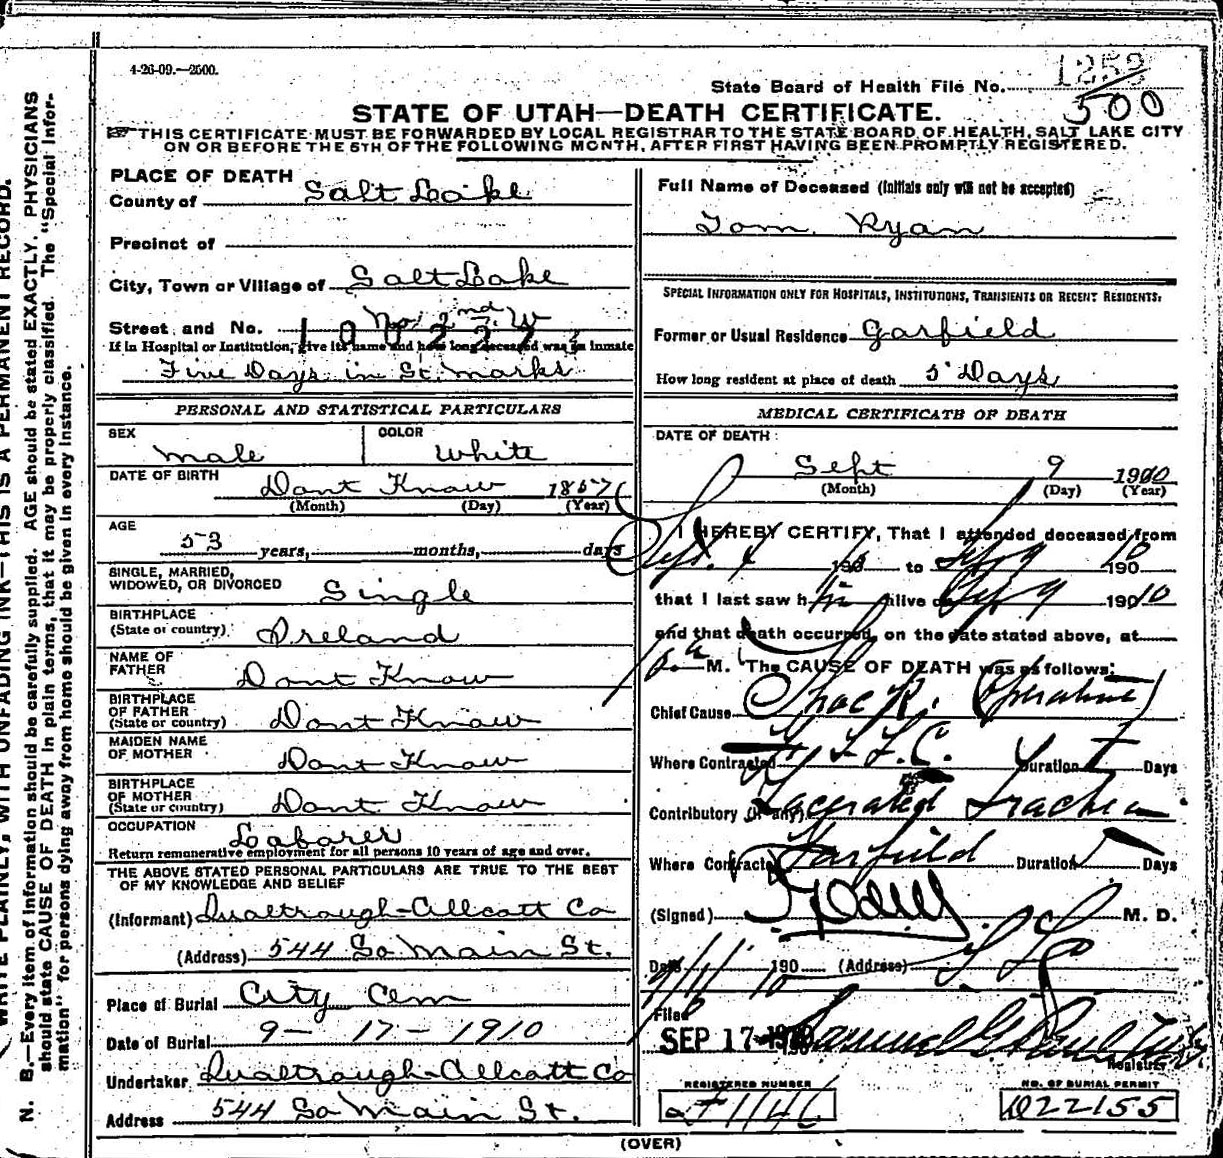 4-26-09.—2500.
State Board of Health File No. 1259
500
STATE OF UTAH—DEATH CERTIFICATE.
THIS CERTIFICATE MUST BE FORWARDED BY LOCAL REGISTRAR TO THE STATE BOARD OF HEALTH, SALT LAKE CITY
ON OR BEFORE THE 5TH OF THE FOLLOWING MONTH, AFTER FIRST HAVING BEEN PROMPTLY REGISTERED.
PLACE OF DEATH
County of Salt Lake
Precinct of
City, Town or Village of Salt Lake
Street and No. No. 2nd W
If in Hospital or Institution, give its name and how long deceased was an inmate
Five Days in St. Marks
Full Name of Deceased (Initials only will not be accepted)
Tom Ryan
SPECIAL INFORMATION ONLY FOR HOSPITALS, INSTITUTIONS, TRANSIENTS OR RECENT RESIDENTS:
Former or Usual Residence Garfield
How long resident at place of death 5 Days
PERSONAL AND STATISTICAL PARTICULARS
SEX
male
COLOR
White
DATE OF BIRTH
Dont Know 1857
(Month) (Day) (Year)
AGE
53 years, months, days
SINGLE, MARRIED,
WIDOWED, OR DIVORCED Single
BIRTHPLACE
(State or country) Ireland
NAME OF
FATHER Dont Know
BIRTHPLACE
OF FATHER
(State or country) Dont Know
MAIDEN NAME
OF MOTHER Dont Know
BIRTHPLACE
OF MOTHER
(State or country) Dont Know
OCCUPATION Laborer
Return remunerative employment for all persons 10 years of age and over.
THE ABOVE STATED PERSONAL PARTICULARS ARE TRUE TO THE BEST
OF MY KNOWLEDGE AND BELIEF
(Informant) Qualtrough-Allcott Co
(Address) 544 So Main St.
Place of Burial City Cem
Date of Burial 9 - 17 - 1910
Undertaker Qualtrough-Allcott Co
Address 544 So Main St.
MEDICAL CERTIFICATE OF DEATH
DATE OF DEATH:
Sept 9 1910
(Month) (Day) (Year)
I HEREBY CERTIFY, That I attended deceased from
Sept. 4 190 to Sep 9 190 10
that I last saw him alive on Sep 9 190 10
and that death occurred, on the date stated above, at
M. The CAUSE OF DEATH was as follows:
Chief Cause Shock. (Operative)
Where Contracted S. L. C. Duration Days
Contributory (if any) Lacerated Trachea
Where Contracted Garfield Duration Days
(Signed) M. D.
Date 9/11/10 190 (Address) S L
Filed
SEP 17 1910 Samuel G Paul
Registrar
REGISTERED NUMBER
F1146
NO. OF BURIAL PERMIT
D22155
(OVER)
WRITE PLAINLY, WITH UNFADING INK—THIS IS A PERMANENT RECORD.
N. B.—Every item of information should be carefully supplied. AGE should be stated EXACTLY. PHYSICIANS
should state CAUSE OF DEATH in plain terms, that it may be properly classified. The "Special Infor-
mation" for persons dying away from home should be given in every instance.